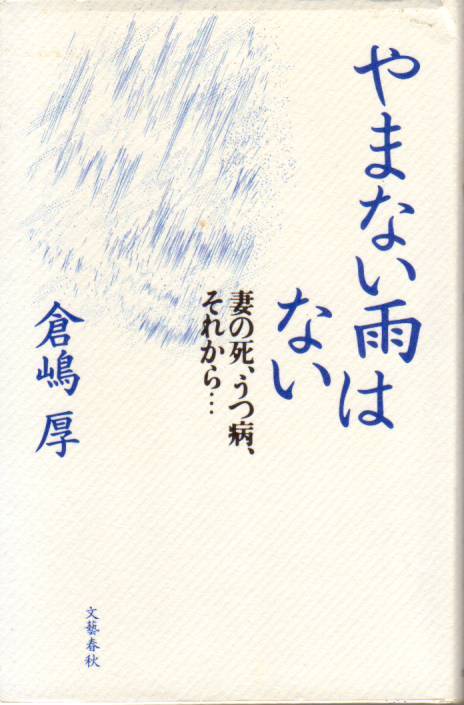 やまない雨は
ない
妻の死、うつ病、
それから…
倉嶋 厚
文藝春秋